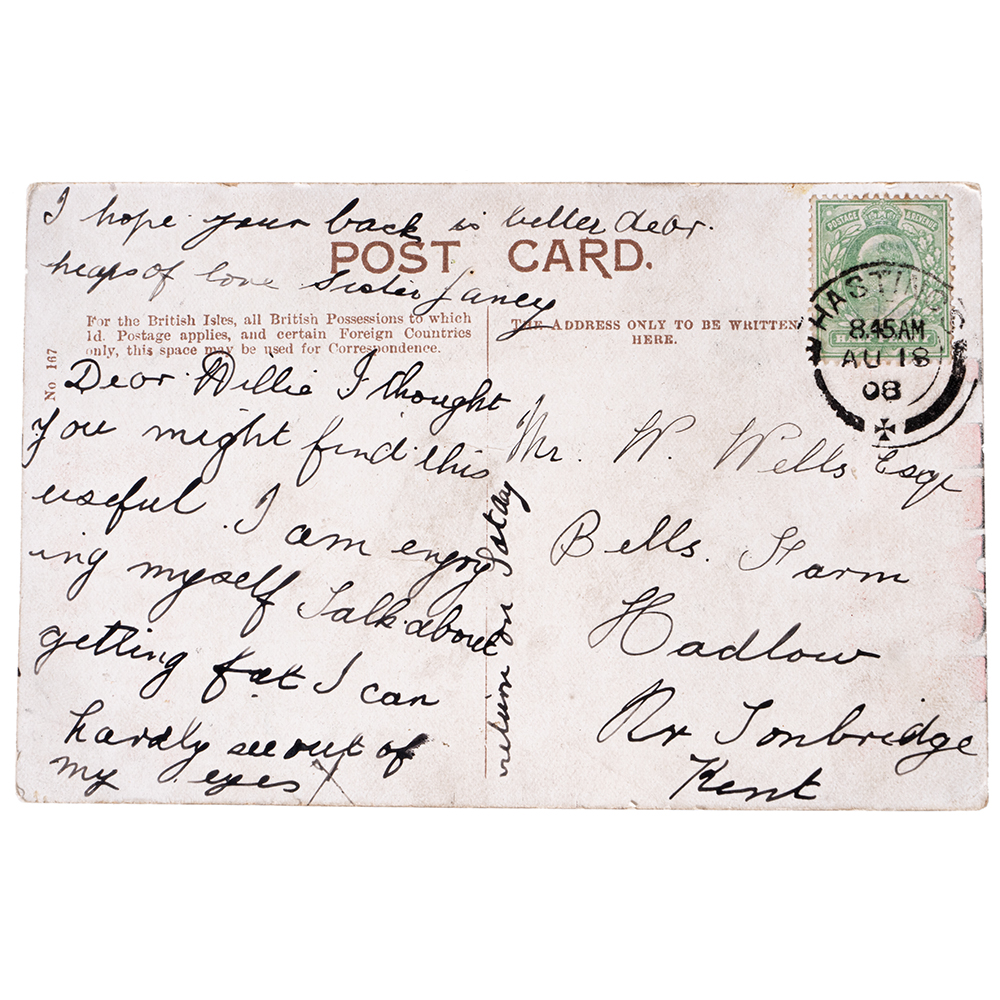 I hope your back is better dear.
heaps of love Sister Janey
POST CARD.
For the British Isles, all British Possessions to which
1d. Postage applies, and certain Foreign Countries
only, this space may be used for Correspondence.
THE ADDRESS ONLY TO BE WRITTEN
HERE.
No 167
Dear Willie I thought
you might find this
useful I am enjoy
ing myself Talk about
getting fat I can
hardly see out of
my eyes X
return on Satday
Mr. W. Wells Esqr
Bells Farm
Hadlow
Nr Tonbridge
Kent
POSTAGE & REVENUE
HASTINGS
8.45AM
AU 18
08